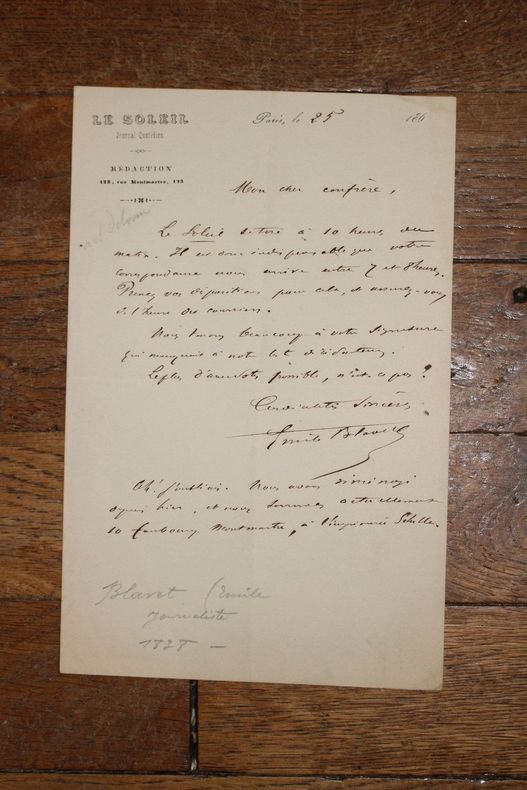 LE SOLEIL
Journal Quotidien
RÉDACTION
123, rue Montmartre, 123
Paris, le 25 186
Mon cher confrère,
Le Soleil se tire à 10 heures du
matin. Il est donc indispensable que votre
correspondance nous arrive entre 7 et 8 heures.
Prenez vos dispositions pour cela, et assurez-vous
de l'heure des courriers.
Nous tenons beaucoup à votre signature
qui manquait à notre liste de rédacteurs.
Le plus d'anecdotes possible, n'est-ce pas ?
Cordialités sincères
Emile Blavet
Oh! j'oubliais. Nous avons déménagé
hier, et nous sommes actuellement
10 faubourg Montmartre, à l'imprimerie Schiller
Blavet (Emile
Journaliste
1828 —